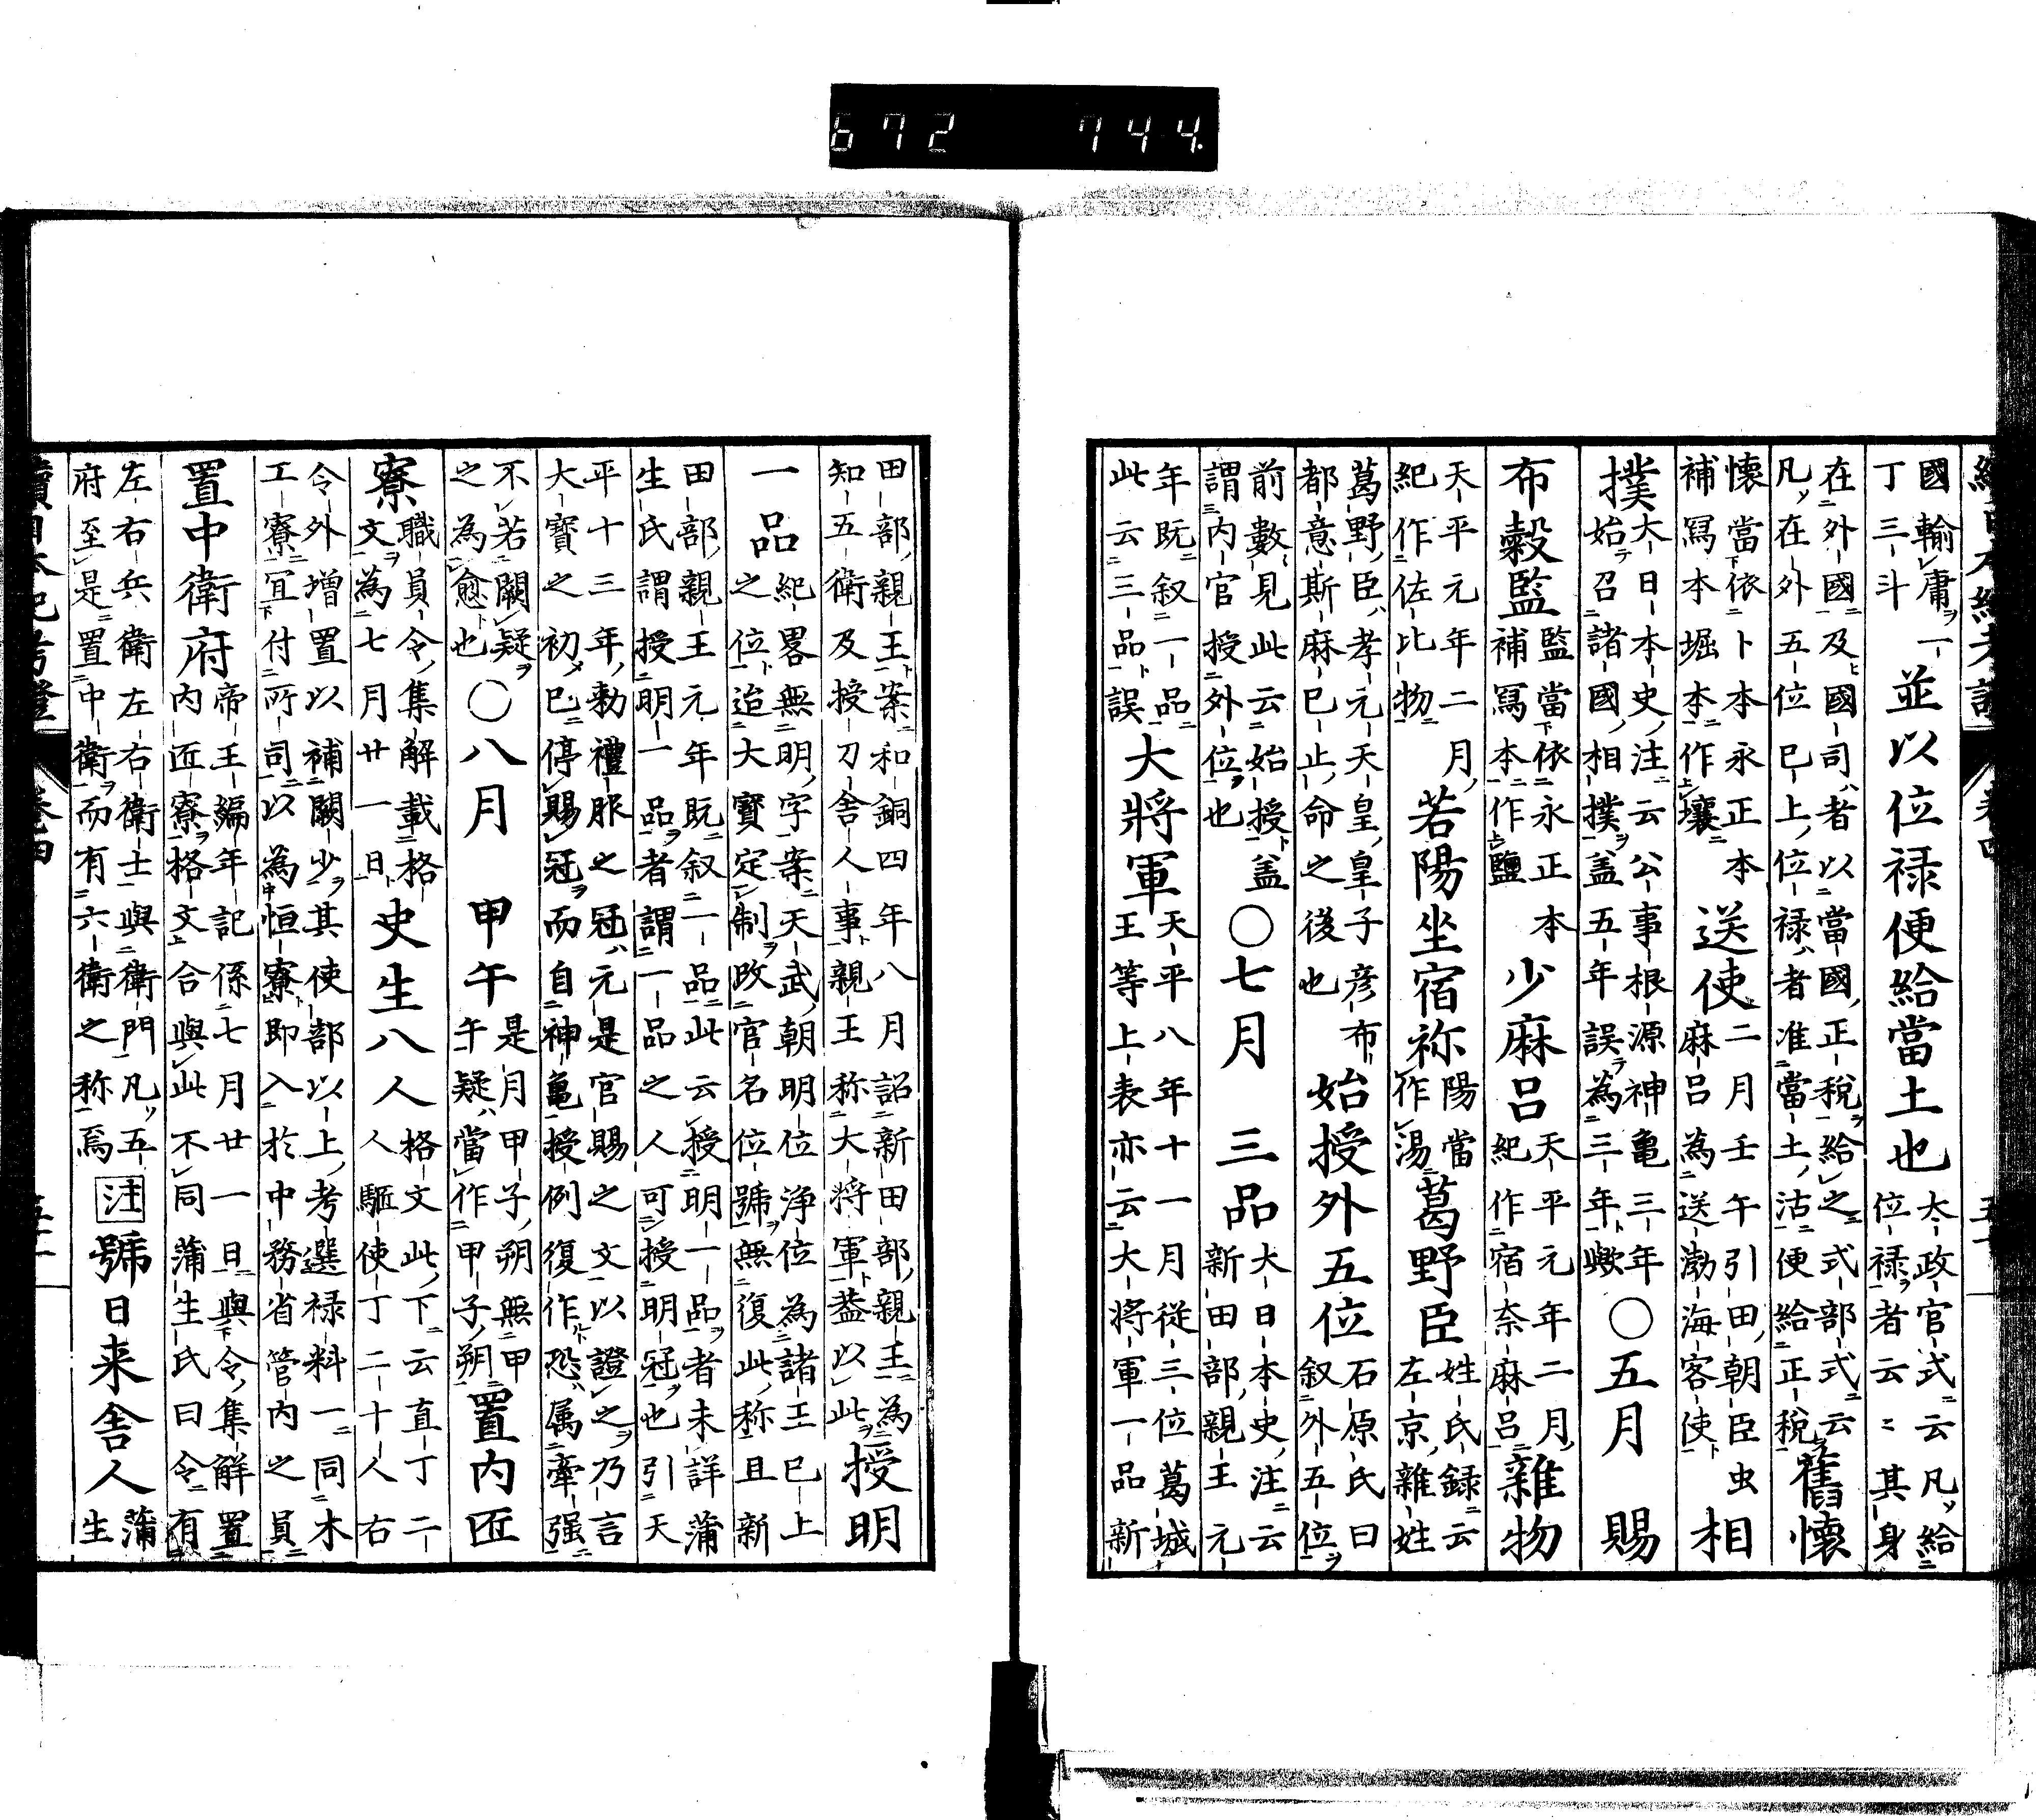 續日本紀考證 卷四 五十一
國輸庸一丁三斗並以位禄便給當土也大政官式云凡給位禄者云〻其身
在外國及國司者以當國正税給之式部式云凡在外五位已上位禄者准當土沽便給正税舊懷
懷當依卜本永正本補冩本堀本作壤送使二月壬午引田朝臣虫麻吕為送渤海客使相
撲大日本史注云公事根源神亀三年始召諸國相撲盖五年誤為三年歟〇五月賜
布穀監監當依永正本補冩本作鹽少麻呂天平元年二月紀作宿奈麻呂雜物
天平元年二月紀作佐比物若陽坐宿祢陽當作湯葛野臣姓氏録云左京雜姓
葛野臣孝元天皇皇子彦布都意斯麻已止命之後也始授外五位石原氏曰叙外五位
前數見此云始授盖謂内官授外位也〇七月三品大日本史注云新田部親王元
年既叙一品此云三品誤大將軍天平八年十一月從三位葛城王等上表亦云大将軍一品新
田部親王案和銅四年八月詔新田部親王為知五衛及授刀舎人事親王称大将軍蓋以此授明
一品紀畧無明字案天武朝明位浄位為諸王已上之位迨大寳定制改官名位號無復此称且新
田部親王元年既叙一品此云授明一品者未詳蒲生氏謂授明一品者謂一品之人可授明冠也引天
平十三年勅禮服之冠元是官賜之文以證之乃言大寳之初已停賜冠而自神亀授例復作恐属牽强
不若闕疑之為愈也〇八月甲午是月甲子朔無甲午疑當作甲子朔置内匠
寮職員令集解載格文為七月廿一日史生八人格文此下云直丁二人駈使丁二十人右
令外増置以補闕少其使部以上考選禄料一同木工寮宜付所司以為恒寮即入於中務省管内之員
置中衛府帝王編年記係七月廿一日與令集解置内匠寮格文合與此不同蒲生氏曰令有
左右兵衛左右衛士與衛門凡五府至是置中衛而有六衛之称焉注號曰来舎人蒲生
續日本紀考證 卷四 五十一
672 744.